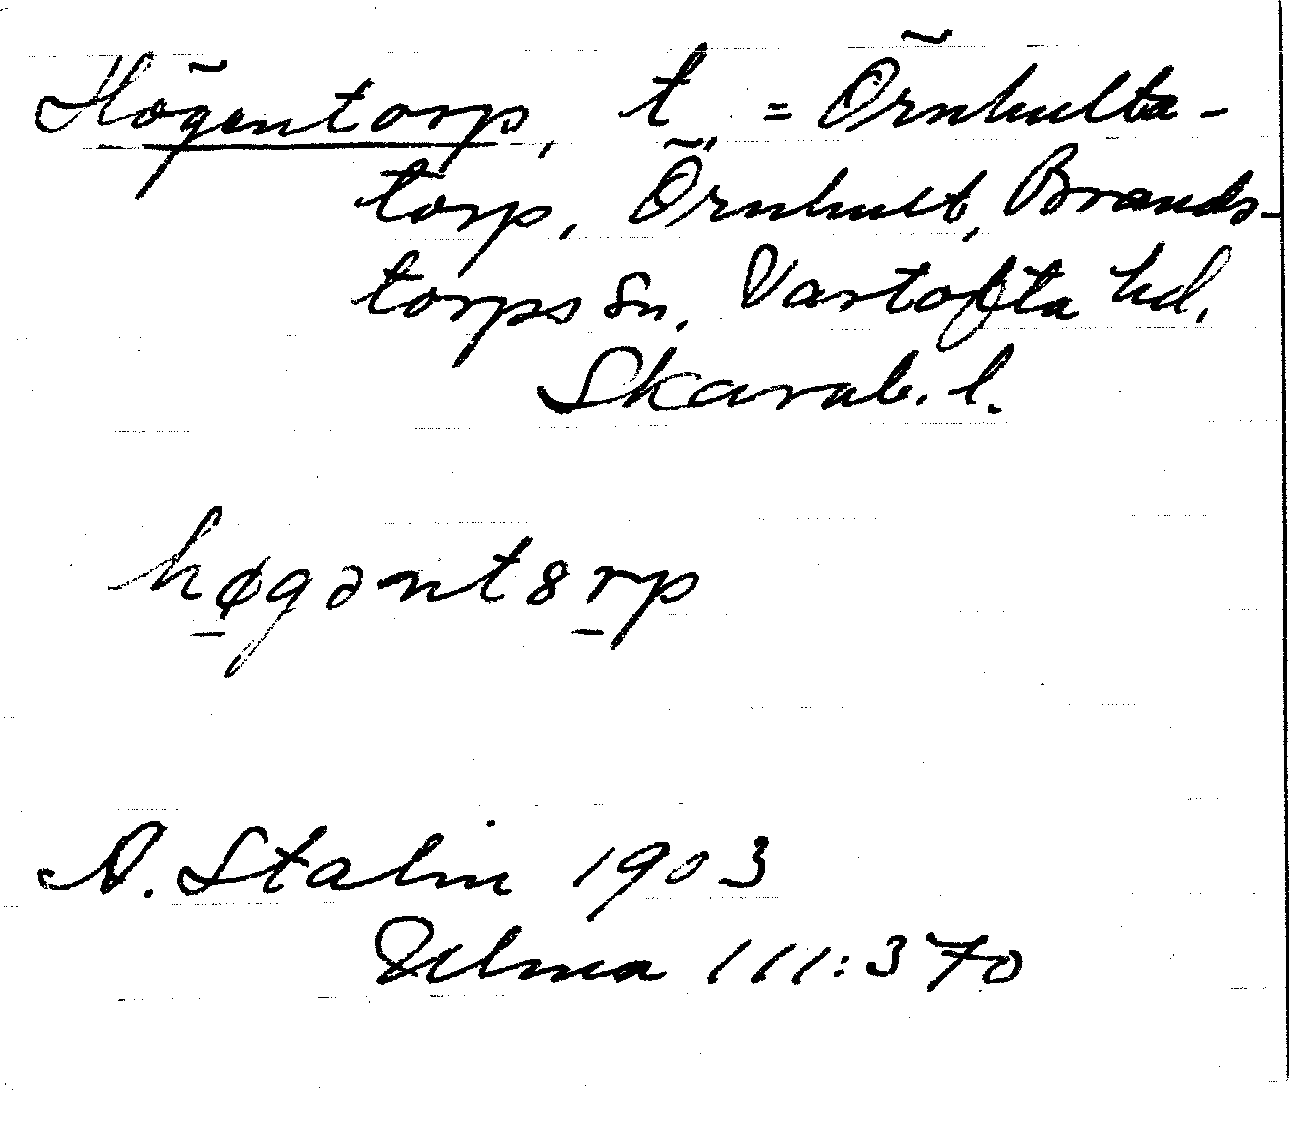 Högentorp, t. = Örnhulta-
torp, Örnhult, Brands-
torps sn, Vartofta hd,
Skarab. l.
høgəntȣrp
A. Stalin 1903
Ulma 111:370